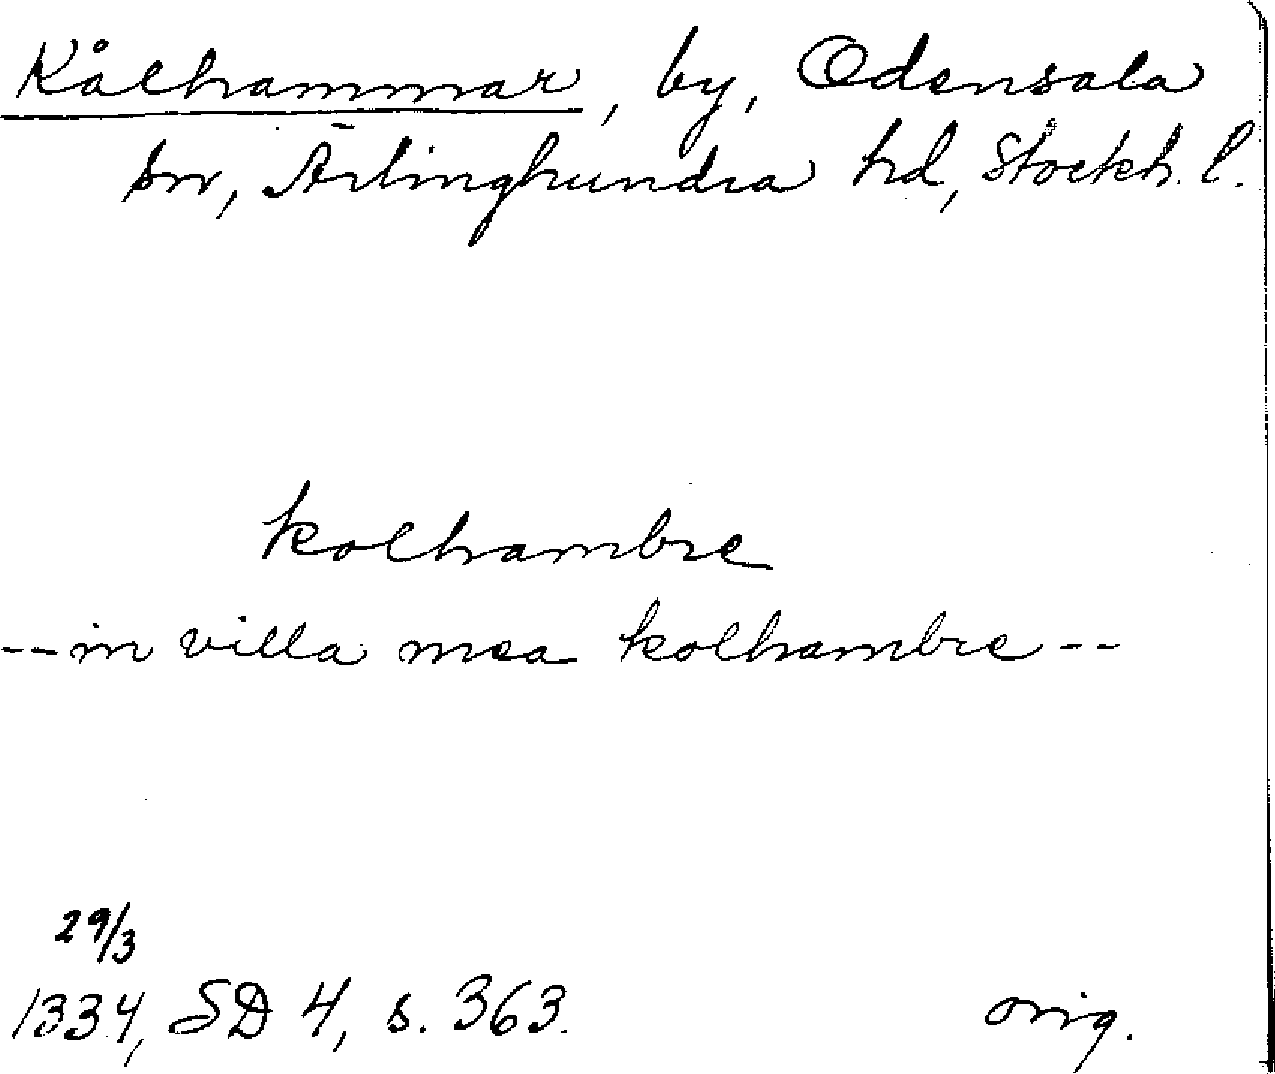 Kålhammar, by, Odensala
sn, Ärlinghundra hd, Stockh. l.
kolhambre
-- in villa mea kolhambre --
29/3
1334, SD 4, s. 363. orig.